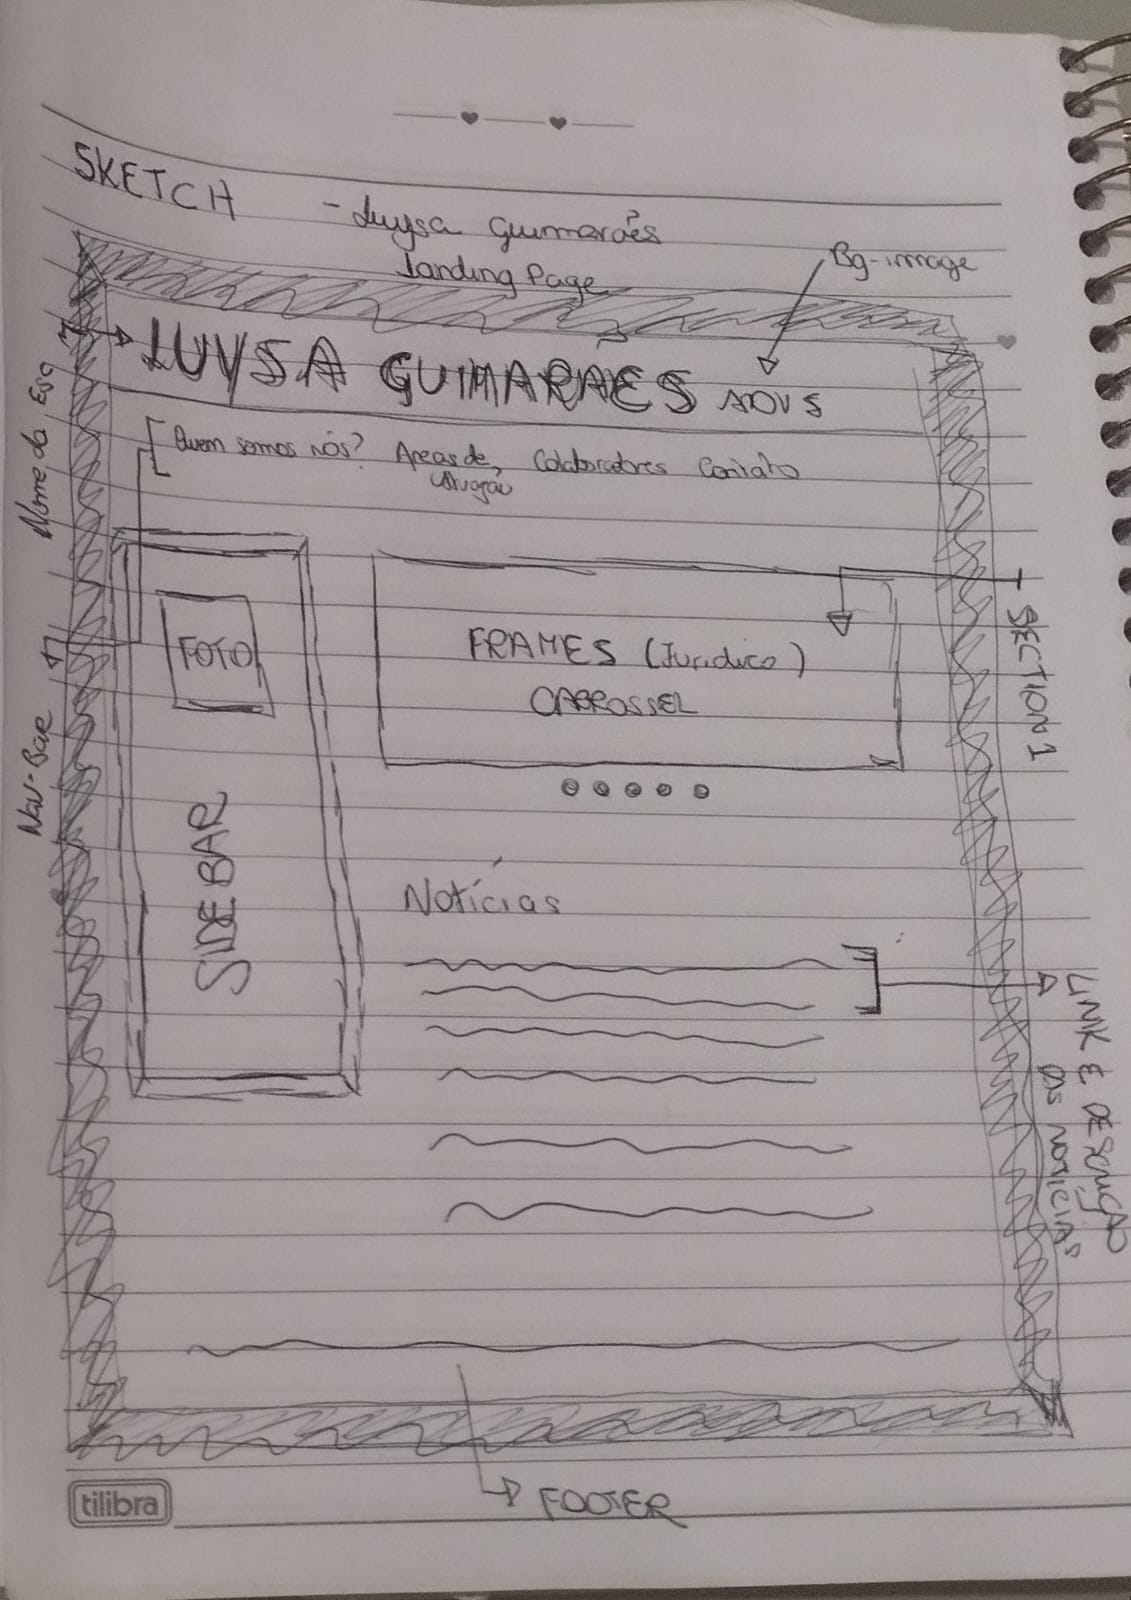 SKETCH - Luysa Guimarães
Landing Page
Bg-image
LUYSA GUIMARÃES ADVS
Nome do Esc
Quem somos nós? Areas de, Colaboradores Contato
atuação
Nav-Bar
FOTO
SIDEBAR
FRAMES (Jurídico)
CARROSSEL
SECTION 1
Notícias
LINK E DESCRIÇÃO
DAS NOTICIAS
FOOTER
tilibra